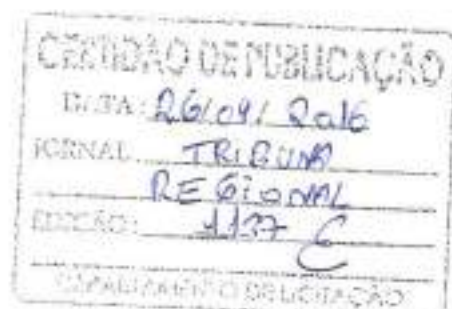 CERTIDÃO DE PUBLICAÇÃO
DATA: 26/09/2016
JORNAL TRIBUNA
REGIONAL
EDIÇÃO: 1137
DE LICITAÇÃO